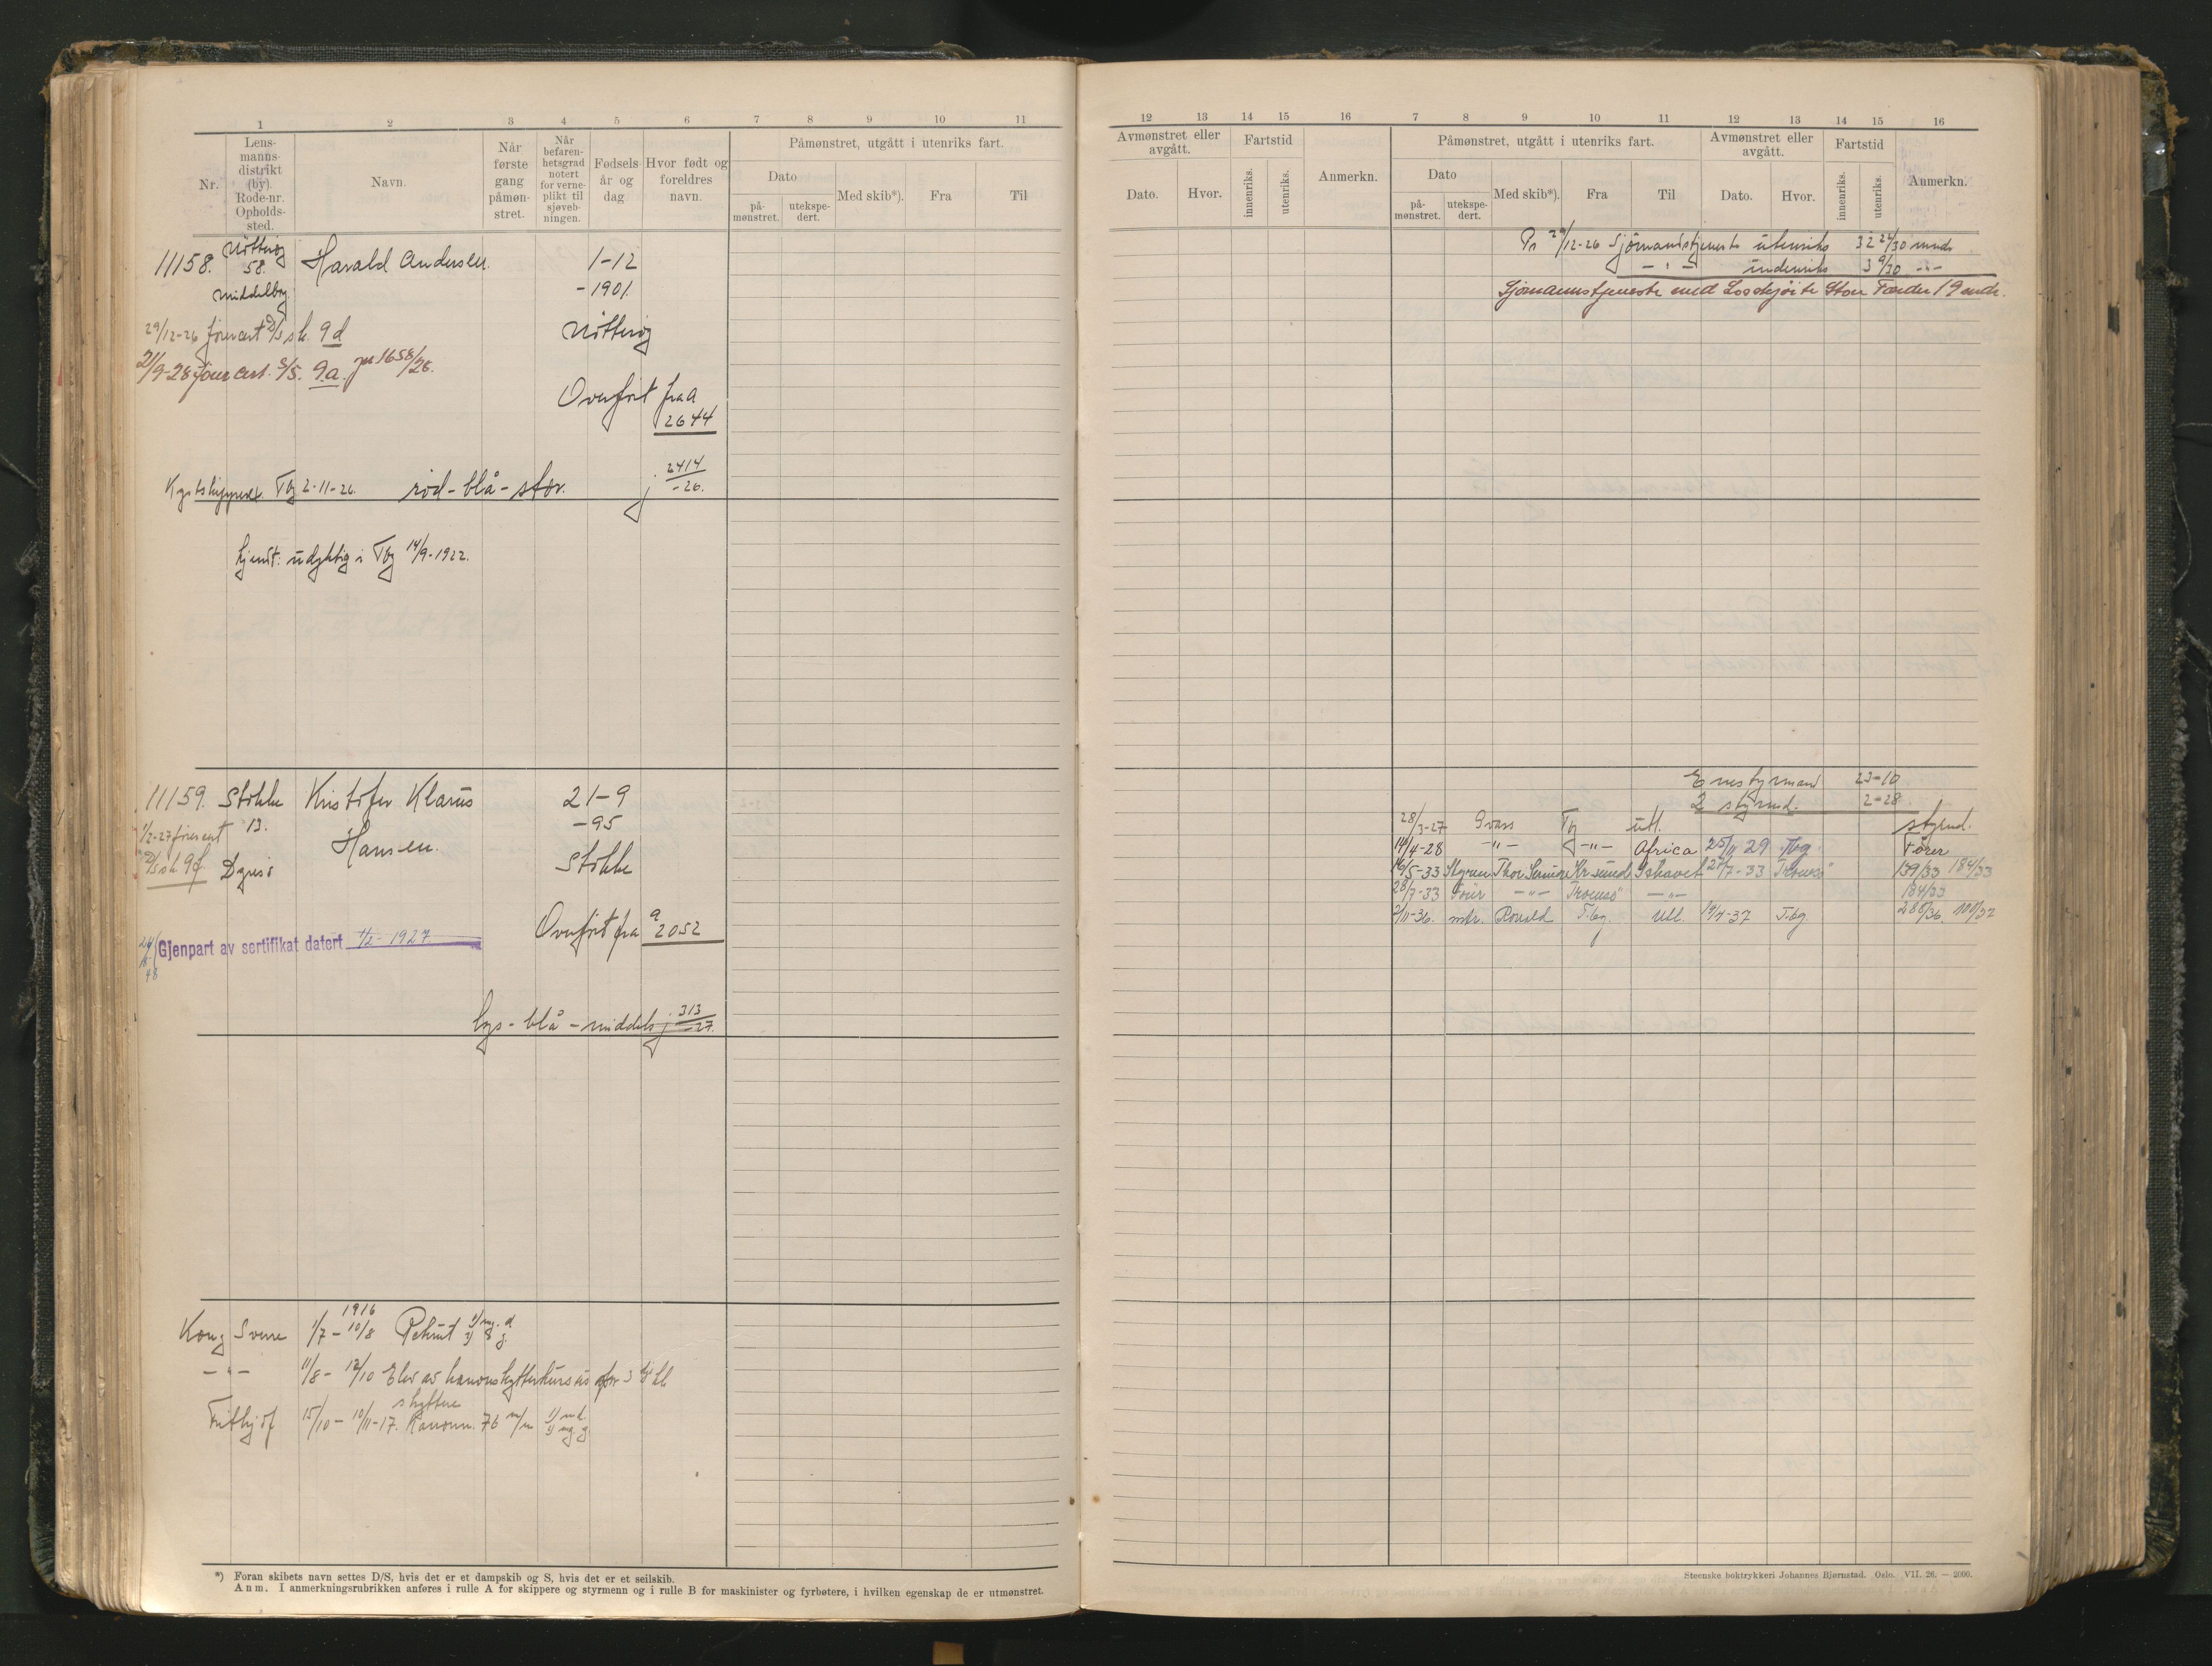 1 2 3 4 5 6 7 8 9 10 11
Nr.
Lens-
manns-
distrikt
(by).
Rode-nr.
Opholds-
sted.
Navn.
Når
første
gang
påmøn-
stret.
Når
befaren-
hetsgrad
notert
for verne-
plikt til
sjøveb-
ningen.
Fødsels
år og
dag
Hvor født og
foreldres
navn.
Påmønstret, utgått i utenriks fart.
Dato
på-
mønstret.
utekspe-
dert.
Med skib*).
Fra
Til
11158. Nøtterøy
58. Harald Andersen. 1-12
Middelbog -1901.
29/12-26 førercert D/S sk. 9d Nøtterøy
21/9-28 fører cert. S/S. 9a. jr 1658/28.
Overført fra A
2644
Kystskipperex. Tbg 2-11-26. rød-blå-stor. j 2414
-26.
kjendt: udyktig i Tbg 14/9-1922.
11159. Stokke Kristofer Klarus 21-9
1/2-27 førercert 13. -95
D/S sk. 9f. Hansen. Stokke
Overført fra a
2052
24/
48 Gjenpart av sertifikat datert 1/2-1927
lys-blå-middels j 313
-27.
1916
Kong Sverre 1/7-10/8 Rekrut
-"- 11/8-12/10 Elev av kanonskytterkursus for
skyttere
Frithjof 15/10-10/11-17. Kanonn. 76 m/m
*) Foran skibets navn settes D/S, hvis det er et dampskib og S, hvis det er et seilskib.
Anm. I anmerkningsrubrikken anføres i rulle A for skippere og styrmenn og i rulle B for maskinister og fyrbøtere, i hvilken egenskap de er utmønstret.
12 13 14 15 16 7 8 9 10 11 12 13 14 15 16
Avmønstret eller
avgått.
Dato.
Hvor.
Fartstid
innenriks.
utenriks.
Anmerkn.
Påmønstret, utgått i utenriks fart.
Dato
på-
mønstret.
utekspe-
dert.
Med skib*).
Fra
Til
Avmønstret eller
avgått.
Dato.
Hvor.
Fartstid
innenriks.
utenriks.
Anmerkn.
Pr 29/12-26 Sjømandstjeneste utenriks 32 26/30 mndr
-"- indenriks 3 9/30 -"-
Sjømannstjeneste med Losskjøite Store Færder 19 mdr.
Enestyrmand 23-10
2 styrmd. 2-28
28/3-27 Tbg utl. styrmd.
14/4-28 -"- -"- Africa 25/11 29 Tbg. Fører
16/5-33 Styrm Thor Kr sund Ishavet 27/7-33 Tromsø 139/33 184/33
28/7-33 Fører -"- Tromsø -"- 184/33
2/11-36. mtr. Ronald T.bg. Utl. 19/4-37 T.bg 280/36. 110/37
Steenske boktrykkeri Johannes Bjørnstad. Oslo. VII. 26. — 2000.